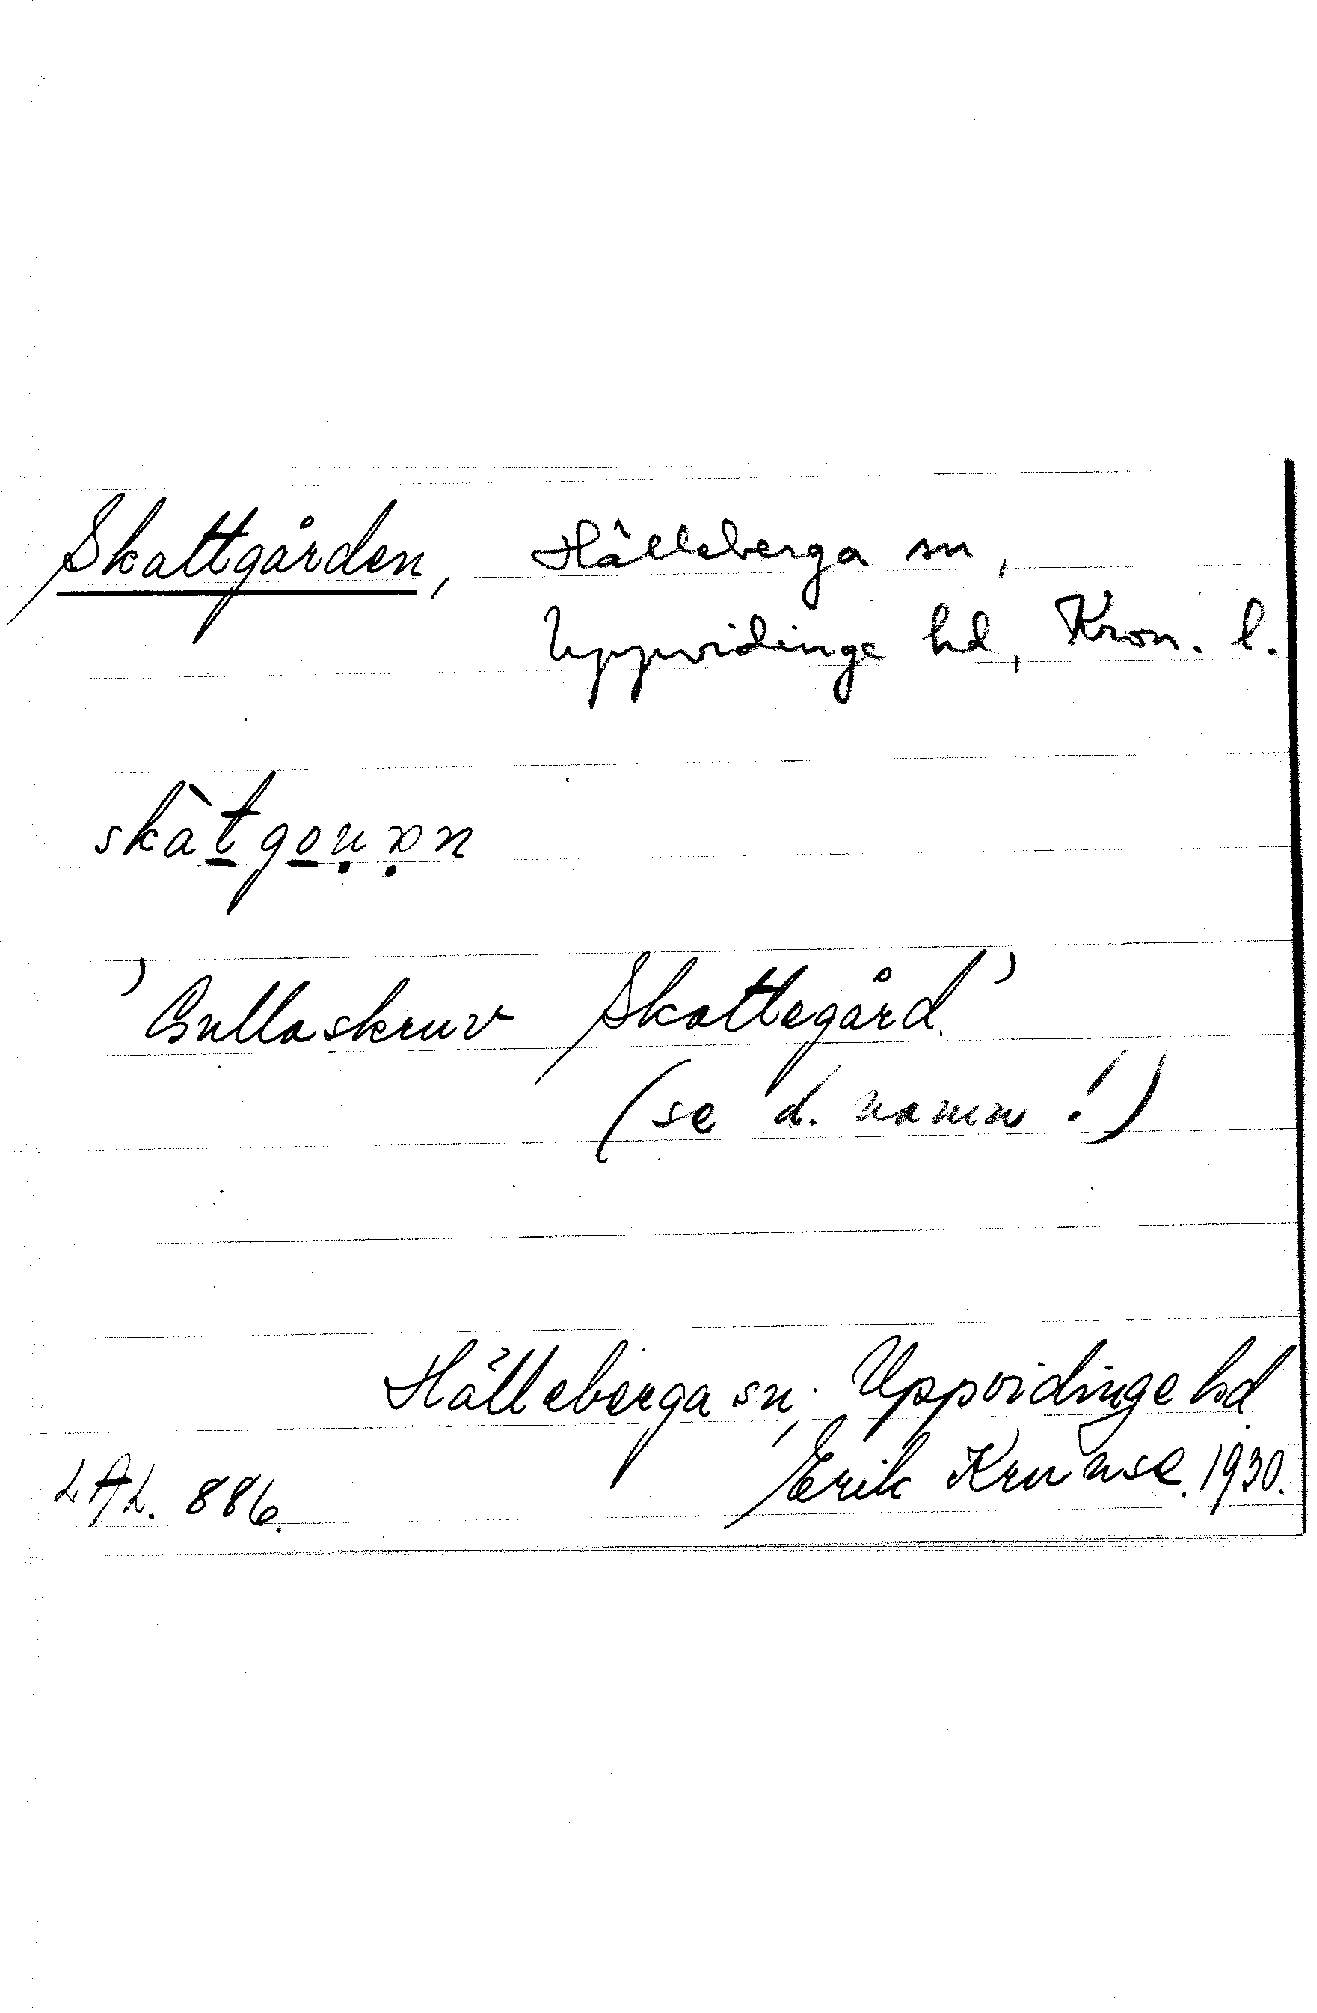 Skattgården, Hälleberga sn,
Uppvidinge hd, Kron. l.
skàtgou̥ən
'Gullaskruv Skattegård'
(se d. namn!)
Hälleberga sn; Uppvidinge hd
LAL. 886. Erik Kruuse. 1930.